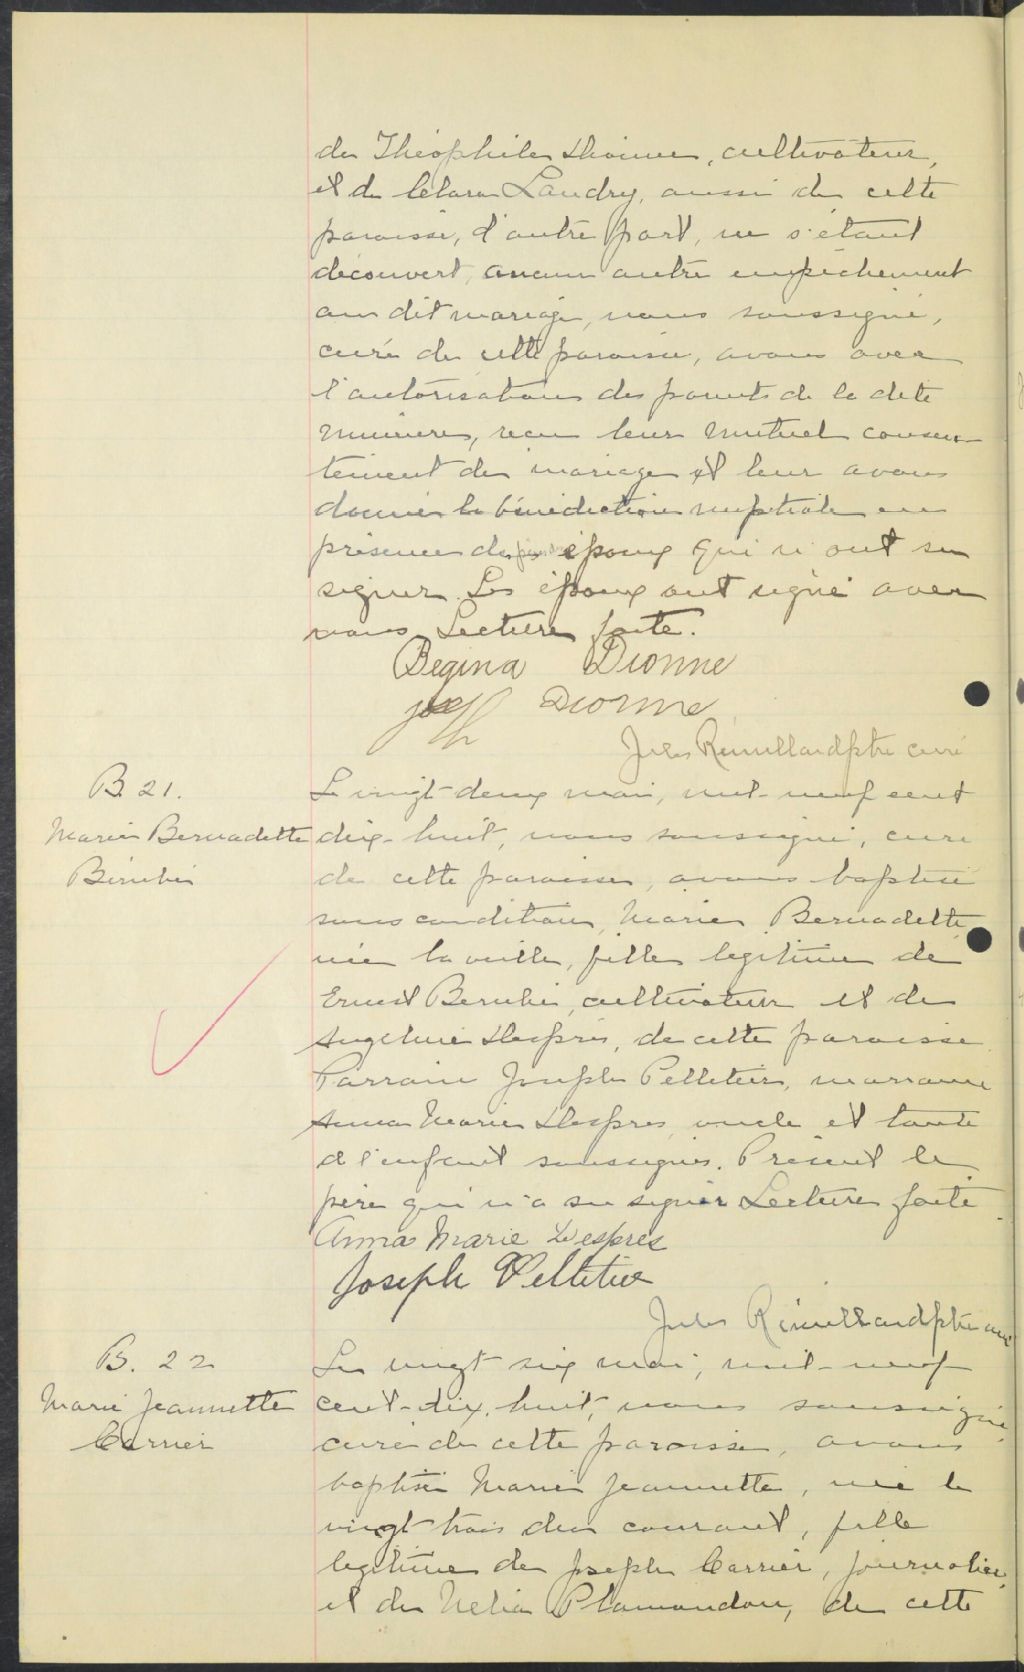 de Théophile Dionne, cultivateur,
et de Clara Landry, aussi de cette
paroisse, d'autre part, ne s'étant
découvert aucun autre empêchement
au dit mariage, nous soussigné,
curé de cette paroisse, avons avec
l'autorisation des parents de la dite
mineure, reçu leur mutuel consen-
tement de mariage et leur avons
donné la bénédiction nuptiale en
présence des époux qui n'ont su
signer. Les époux ont signé avec
nous. Lecture faite.
Regina Dionne
Jos Dionne
Jules Rémillard ptre curé
B. 21.
Marie Bernadette
Bérubé
Le vingt-deux mai, mil-neuf cent
dix-huit, nous soussigné, curé
de cette paroisse, avons baptisé
sous condition, Marie Bernadette
née la veille, fille légitime de
Ernest Bérubé, cultivateur et de
Angeline Desprès, de cette paroisse
Parrain Joseph Pelletier, marraine
Anna Marie Desprès, oncle et tante
de l'enfant soussignés. Présent le
père qui n'a su signer Lecture faite
Anna Marie Desprès
Joseph Pelletier
Jules Rémillard ptre curé
B. 22
Marie Jeannette
Carrier
Le vingt six mai, mil-neuf
cent-dix-huit, nous soussigné
curé de cette paroisse, avons
baptisé Marie Jeannette, née le
vingt trois du courant, fille
légitime de Joseph Carrier, journalier,
et de Nelia Plamondon, de cette